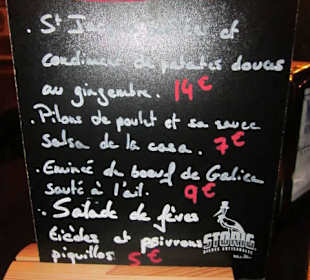 . St J et
condiment de patates douces
au gingembre. 14€
. Pilons de poulet et sa sauce
salsa de la casa. 7€
. Émincé de boeuf de Galice
sauté à l'ail. 9€
. Salade de fèves
et poivrons
piquillos 5€
STORIG
BIÈRES ARTISANALES